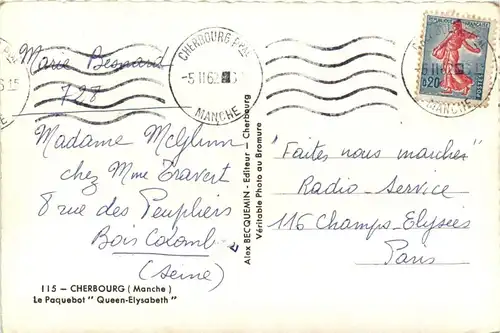 Marie Besnard
728
Madame McGlunn
chez Mme Travert
8 rue des Peupliers
Bois Colombe
(Seine)
115 — CHERBOURG (Manche)
Le Paquebot " Queen-Elysabeth "
Alex BECQUEMIN - Editeur - Cherbourg
Véritable Photo au Bromure
CHERBOURG
-5 II 62
MANCHE
0,20
POSTES
"Faites nous marcher"
Radio-Service
116 Champs-Elysées
Paris